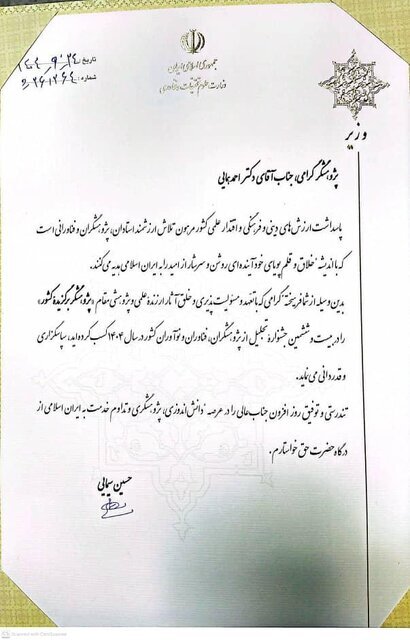 جمهوری اسلامی ایران
وزارت علوم، تحقیقات و فناوری
تاریخ: ۱۴۰۴/۹/۲۴
شماره:
وزیر
پژوهشگر گرامی، جناب آقای دکتر احمد بهایی
پاسداشت ارزش‌های دینی و فرهنگی و اقتدار علمی کشور مرهون تلاش ارزشمند استادان، پژوهشگران و فناورانی است
که با اندیشه خلاق و قلم پویای خود آینده‌ای روشن و سرشار از امید را به ایران اسلامی هدیه می‌کنند.
بدین وسیله از شما فرهیخته گرامی که با تعهد و مسئولیت پذیری و خلق آثار ارزنده علمی و پژوهشی مقام «پژوهشگر برگزیده کشور»
را در بیست و ششمین جشنواره تجلیل از پژوهشگران، فناوران و نوآوران کشور در سال ۱۴۰۴ کسب کرده‌اید، سپاسگزاری
و قدردانی می‌نماید.
تندرستی و توفیق روز افزون جناب عالی را در عرصه دانش اندوزی، پژوهشگری و تداوم خدمت به ایران اسلامی از
درگاه حضرت حق خواستارم.
حسین سیمایی
Scanned with CamScanner